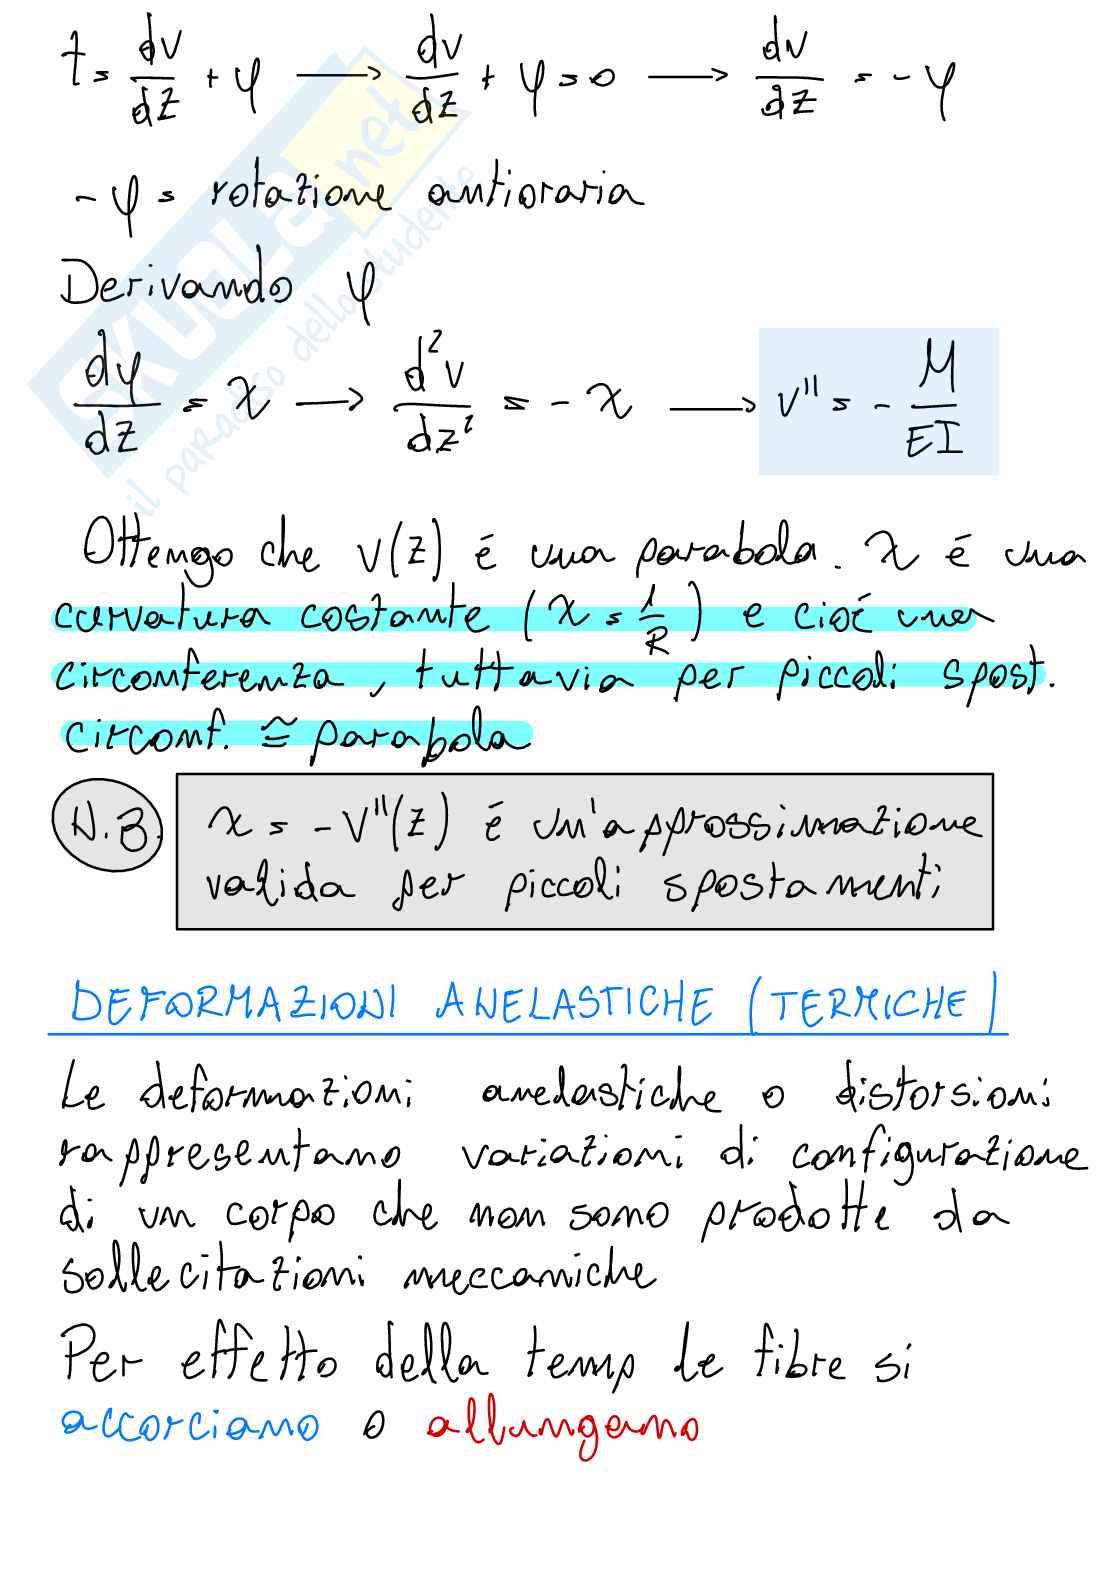 t = dv/dz + φ → dv/dz + φ = 0 → dv/dz = - φ
- φ = rotazione antioraria
Derivando φ
dφ/dz = χ → d²v/dz² = - χ → v'' = - M/EI
Ottengo che v(z) é una parabola. χ é una
curvatura costante (χ = 1/R) e cioé una
circonferenza, tuttavia per piccoli spost.
circonf. ≅ parabola
N.B. χ = -v''(z) é un'approssimazione
valida per piccoli spostamenti
DEFORMAZIONI ANELASTICHE (TERMICHE)
Le deformazioni anelastiche o distorsioni
rappresentano variazioni di configurazione
di un corpo che non sono prodotte da
sollecitazioni meccaniche
Per effetto della temp le fibre si
accorciano o allungano
SKUOLA.net
il paradiso dello studente